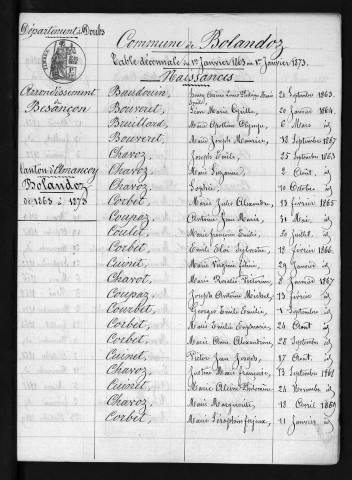 Département du Doubs
Commune de Bolandoz
Table décennale du 1er Janvier 1863 au 1er Janvier 1873.
Naissances
Arrondissement
de
Besançon
Canton d'Amancey
Bolandoz
de 1863 à 1873
Baudouin, 20 Septembre 1863.
Bouveret, Léon Marie 20 Janvier 1864.
Bruillard, Marie Apolline 6 Mars id
Bouveret, Marie Joseph Maurice, 18 Septembre 1867
Chavoz, Joseph Emile, 25 Septembre 1863
Chavoz, Marie Suzanne, 2 Août id
Chavoz, Sophie, 10 Octobre id
Corbet, Marie Jules Alexandre, 13 février 1865
Coupaz, Antoine Jean Marie, 31 Mai, id
Coulet, Marie françoise Emilie, 30 Juillet, id
Corbet, Emile Eloi Sylvestre, 18 février 1866.
Cuinet, Marie Virginie 29 Janvier id
Chavot, Marie Rosalie Victorine, 8 Janvier 1867
Coupaz, Joseph Antoine Michel, 13 février id
Courbet, Georges Emile 1 Septembre id
Corbet, Marie Emile 24 Août id
Corbet, Marie Alexandrine, 28 Septembre id
Cuinet, Victor Jean 17 Août, id
Chavoz, Justine Marie françoise, 13 Septembre 1868
Cuinet, Marie 24 Novembre id
Chavoz, Marie Marguerite, 18 Avril 1869
Corbet, Marie Séraphin 11 Janvier id